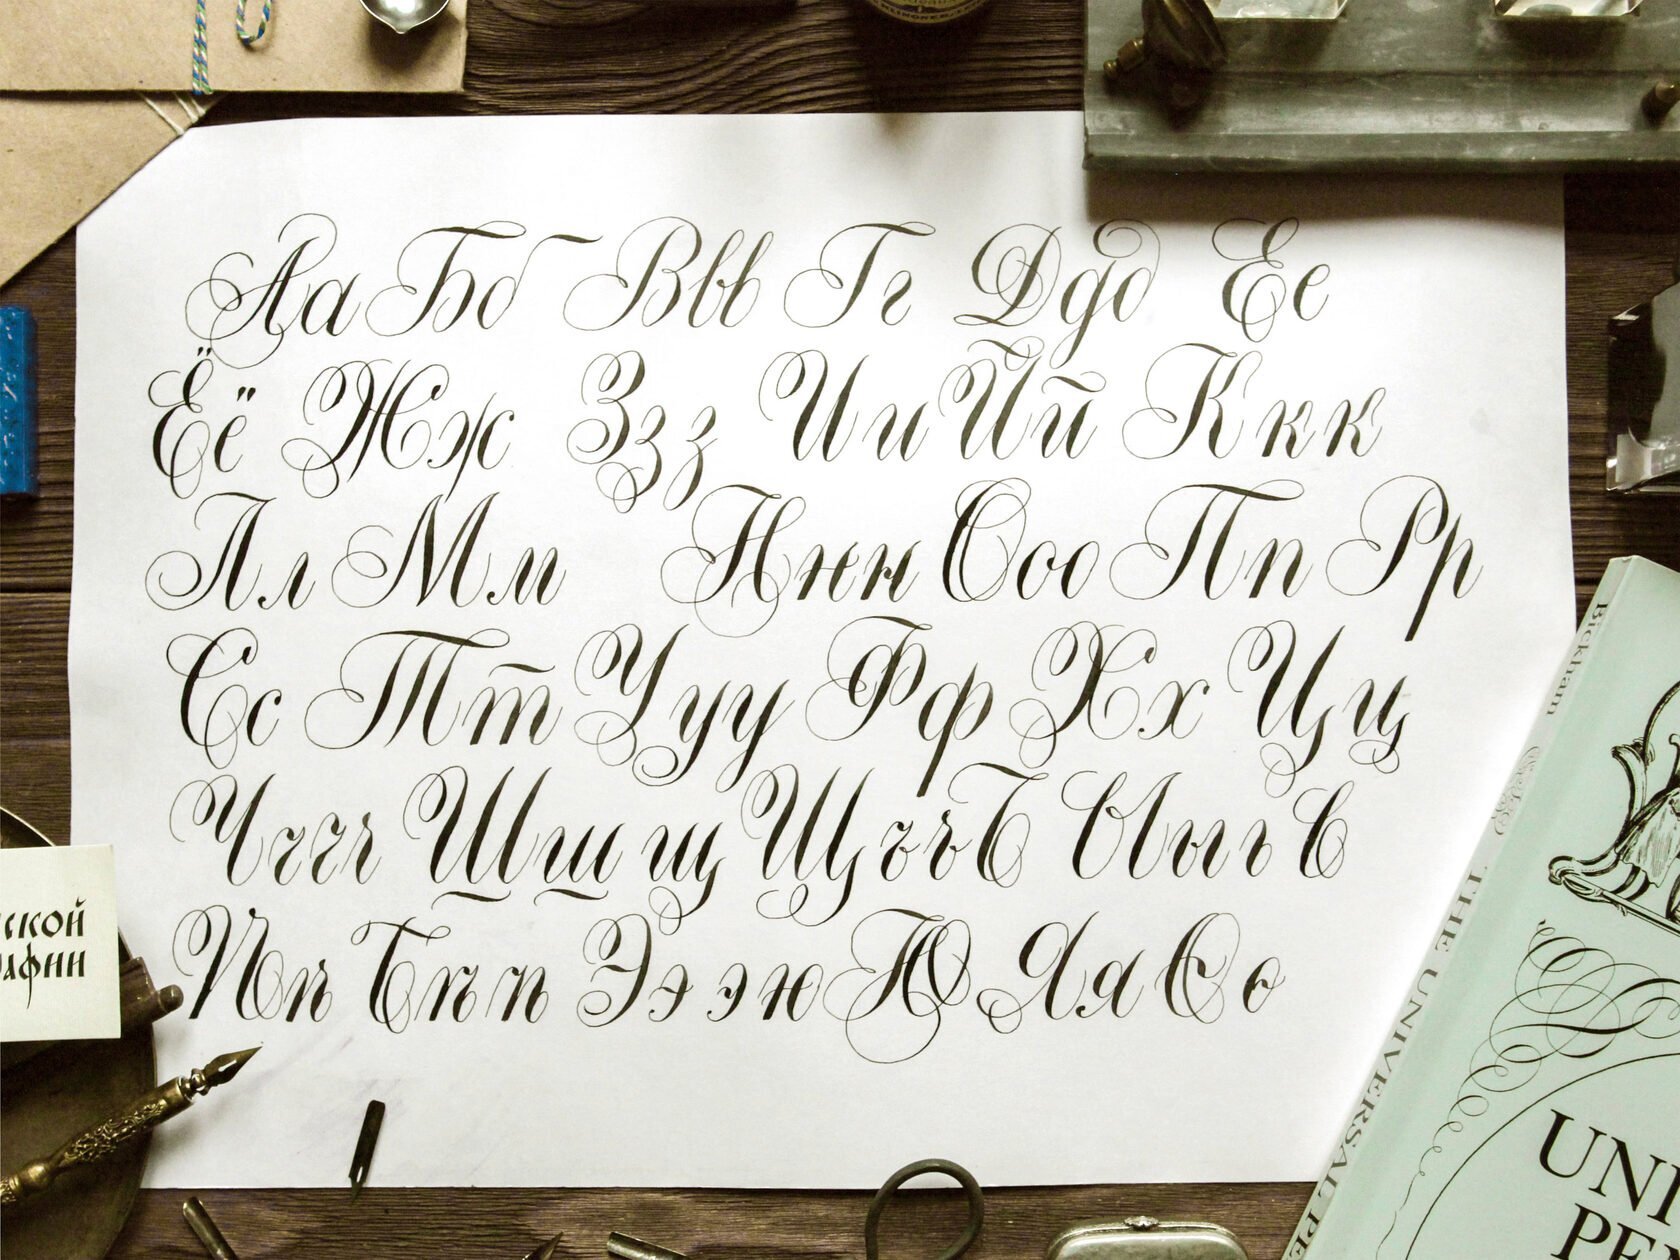 Аа Бб Ввв Гг Ддд Ее
Ёё Жж Ззз Ии Йй Ккк
Лл Мм Ннн Ооо Пп Рр
Сс Тт Ууу Фф Хх Цц
Чччч Шш щ Щ ъъЪ Ыыь Ь
Ѣѣ Эээю Ю Яя Ѳѳ
ской
афии
Bickham
THE UNIVERSAL PE
UNI
PE